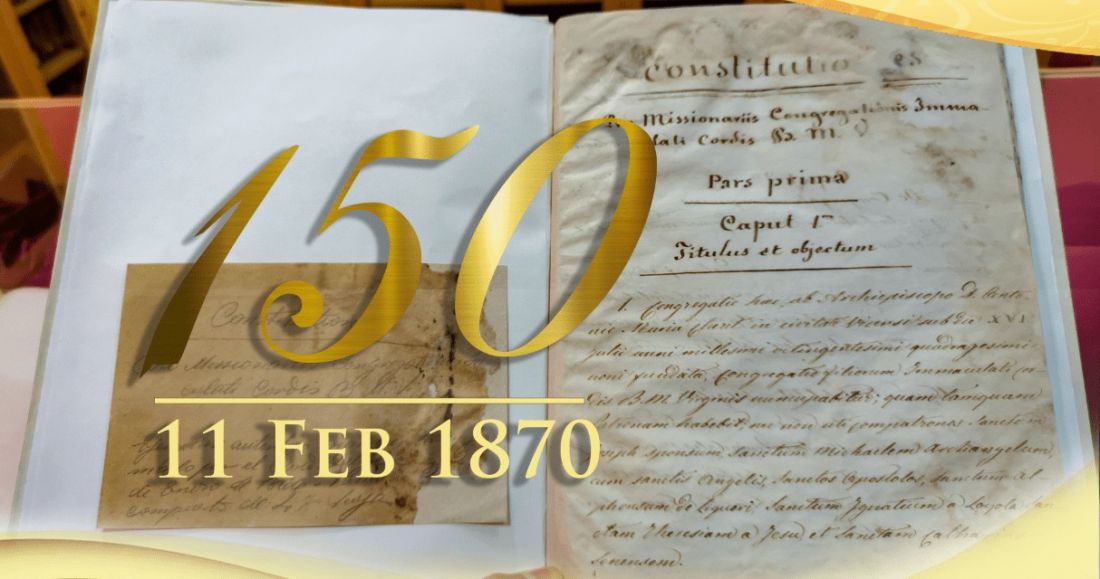 150
11 FEB 1870
Constitutiones
Missionariis Congregationis Imma
lati Cordis B. M. V
Pars prima
Caput 1º
Titulus et objectum
1. Congregatio hæc, ab Archiepiscopo D. Anto-
nio Maria Claret in civitate Vicensi sub die XVI
julii anni millesimi octingentesimi quadragesimi
noni fundata, Congregatio filiorum Immaculati Cor-
dis B. M. Virginis nuncupabitur; quam tamquam
Patronam habebit nec non uti compatronos Sanctum
Joseph sponsum, Sanctum Michaelem Archangelum,
cum sanctis Angelis, Sanctos Apostolos, Sanctum Al-
phonsum de Liguori, Sanctum Ignatium a Loyola San
ctam Theresiam a Jesu et Sanctam Catha
Senensem.
Missionarios
culati Cordis